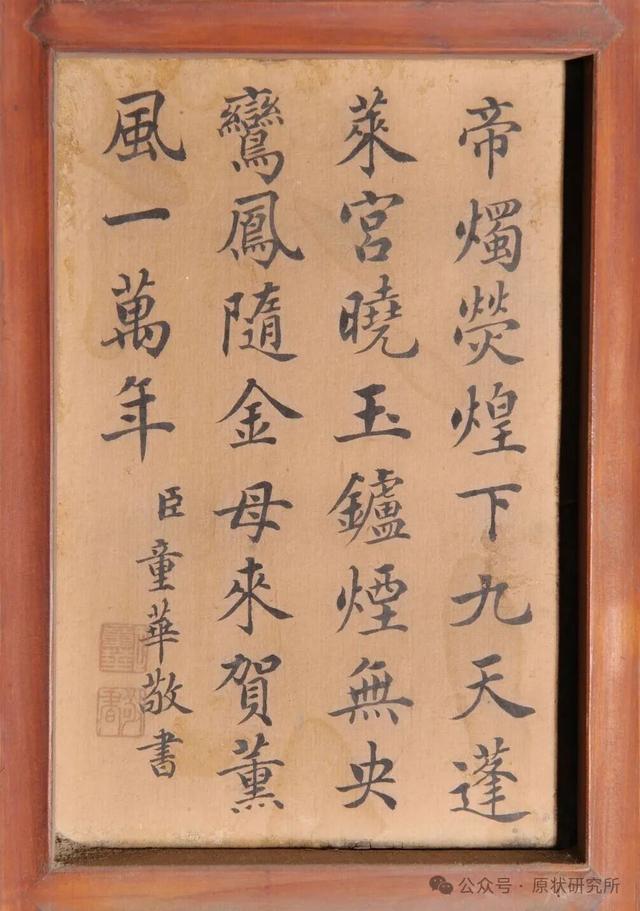 帝燭熒煌下九天蓬
萊宮曉玉鑪煙無央
鸞鳳隨金母來賀薰
風一萬年
臣童華敬書
公众号·原状研究所